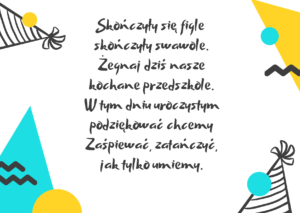 Skończyły się figle
skończyły swawole.
Żegnaj dziś nasze
kochane przedszkole.
W tym dniu uroczystym
podziękować chcemy
Zaśpiewać, zatańczyć,
jak tylko umiemy.